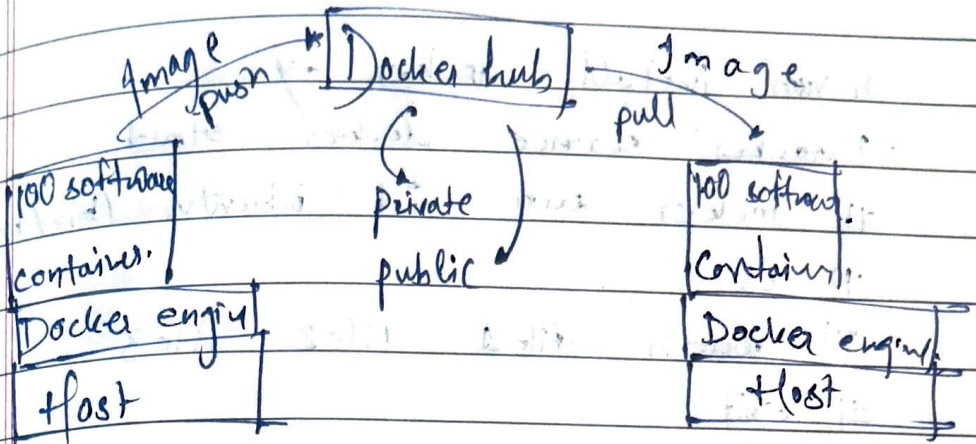 Docker hub
Image
push
Image
pull
private
public
100 software
container.
Docker engin
Host
100 softwar.
Container.
Docker engine
Host